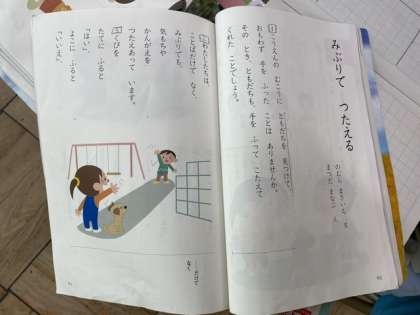 みぶりで つたえる
のむら まさいち と
１ こうえんの むこうに ともだちを 見つけて、
おもわず 手を ふった ことは ありませんか。
その とき、ともだちも、手を ふって こたえて
くれた ことでしょう。
２ わたしたちは、
ことばだけで なく、
みぶりでも、
気もちや
かんがえを
つたえあって います。
３ くびを
たてに ふると
「はい」、
よこに ふると
「いいえ」、
――だけで
なく